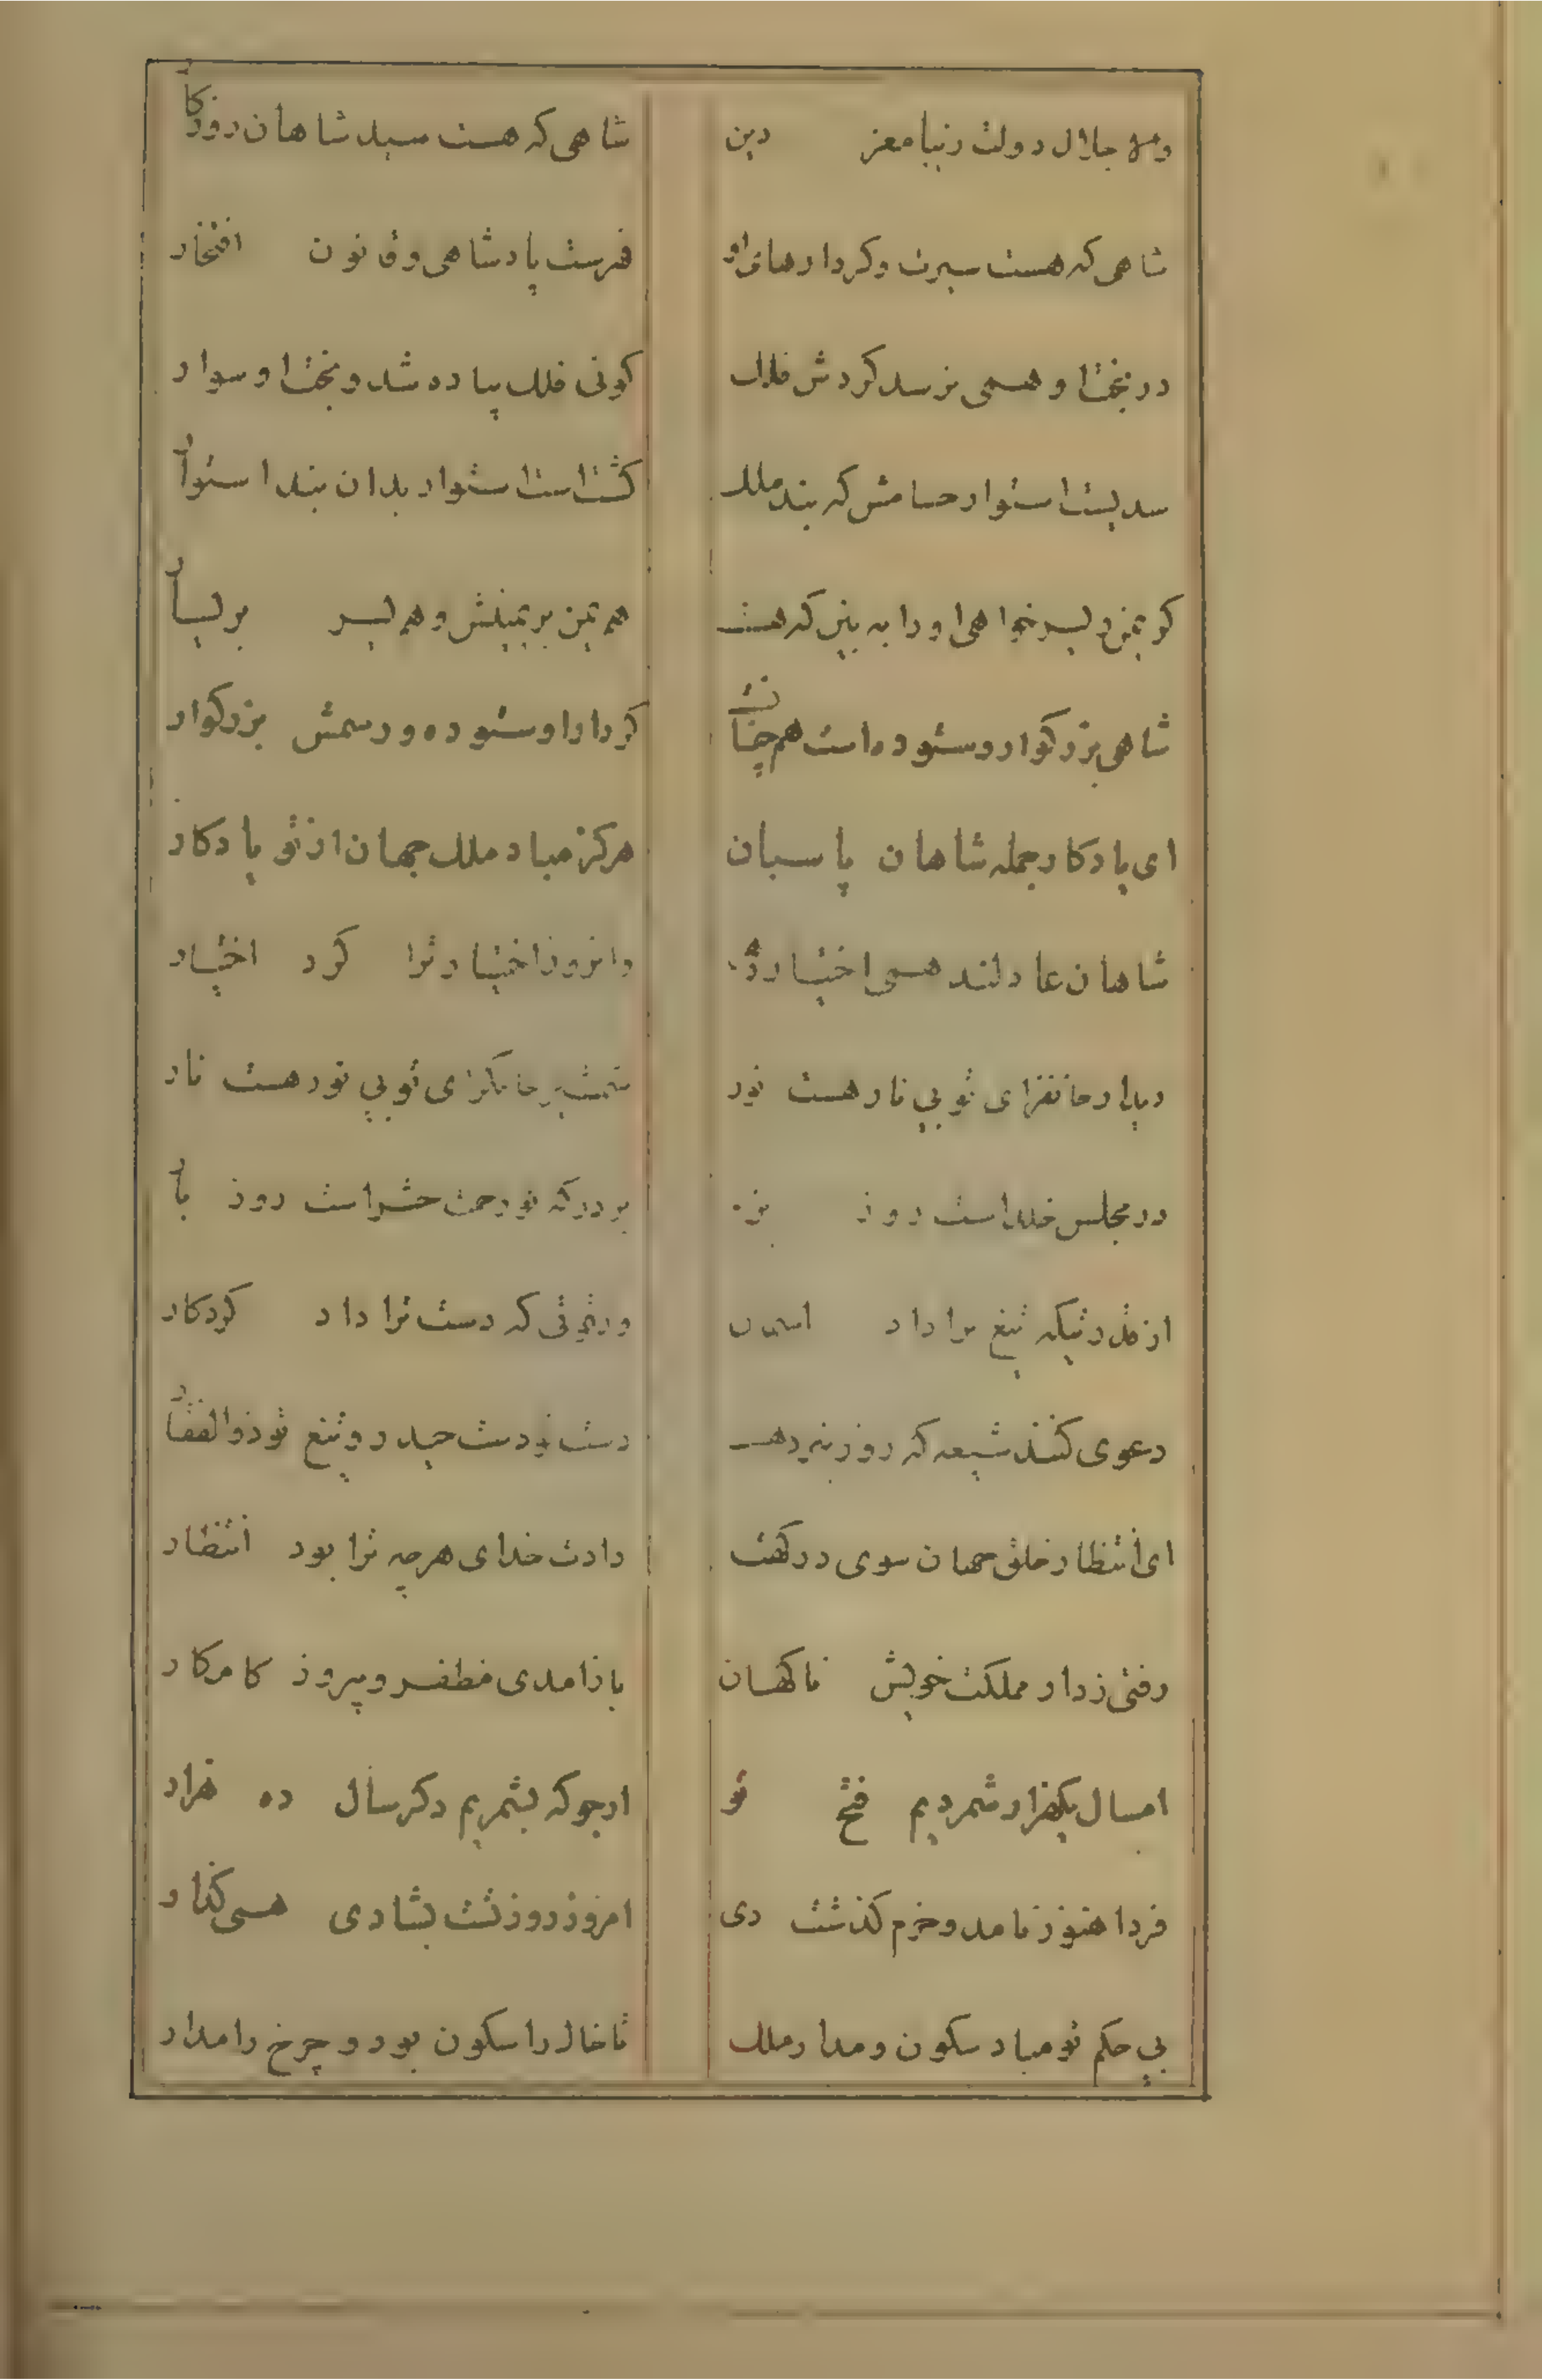 والا جلال دولت دنیا معز دین
شاهی که هست سید شاهان روزکار
شاهی که هست سیرت و کردارهای او
فهرست پادشاهی و قانون افتخار
در بخت او همی نرسد کردش فلک
کوئی فلک پیاده شد و بخت او سوار
سدیست استوار حسامش که بند ملک
کشت است استوار بدان بند استوار
کو یمن و یسر خواهی او را به بین که هست
هم یمن بر یمینش و هم یسر بر یسار
شاهی بزرکوار و ستوده است همچنانک
کردار او ستوده و رسمش بزرکوار
ای یادکار جمله شاهان باستان
هرکز مباد ملک جهان از تو یادکار
شاهان عادلند همی اختیار
وایزد ز اختیار ترا کرد اختیار
دیدار جانفزای تو بی نار هست نور
شمشیر جانکزای تو بی نور هست نار
در مجلس خلد است روز بزم
بر درکه تو رحمت حشر است روز بار
از قدرتیکه تیغ ترا داد آسمان
در قوتی که دست ترا داد کردکار
دعوی کنند شیعه که روز نبرد هست
دست تو دست حیدر و تیغ تو ذوالفقار
ای انتظار خلق جهان سوی درکهت
دادت خدای هرچه ترا بود انتظار
رفتی ز دار مملکت خویش ناکهان
بازآمدی مظفر و پیروز کامکار
امسال یکهزار شمردیم فتح تو
ارجو که بشمریم دکر سال ده هزار
فردا هنوز نامد و خرم کذشت دی
امروز روز تست بشادی همی کذار
بی حکم تو مباد سکون و مدار ملک
تا خاک را سکون بود و چرخ را مدار